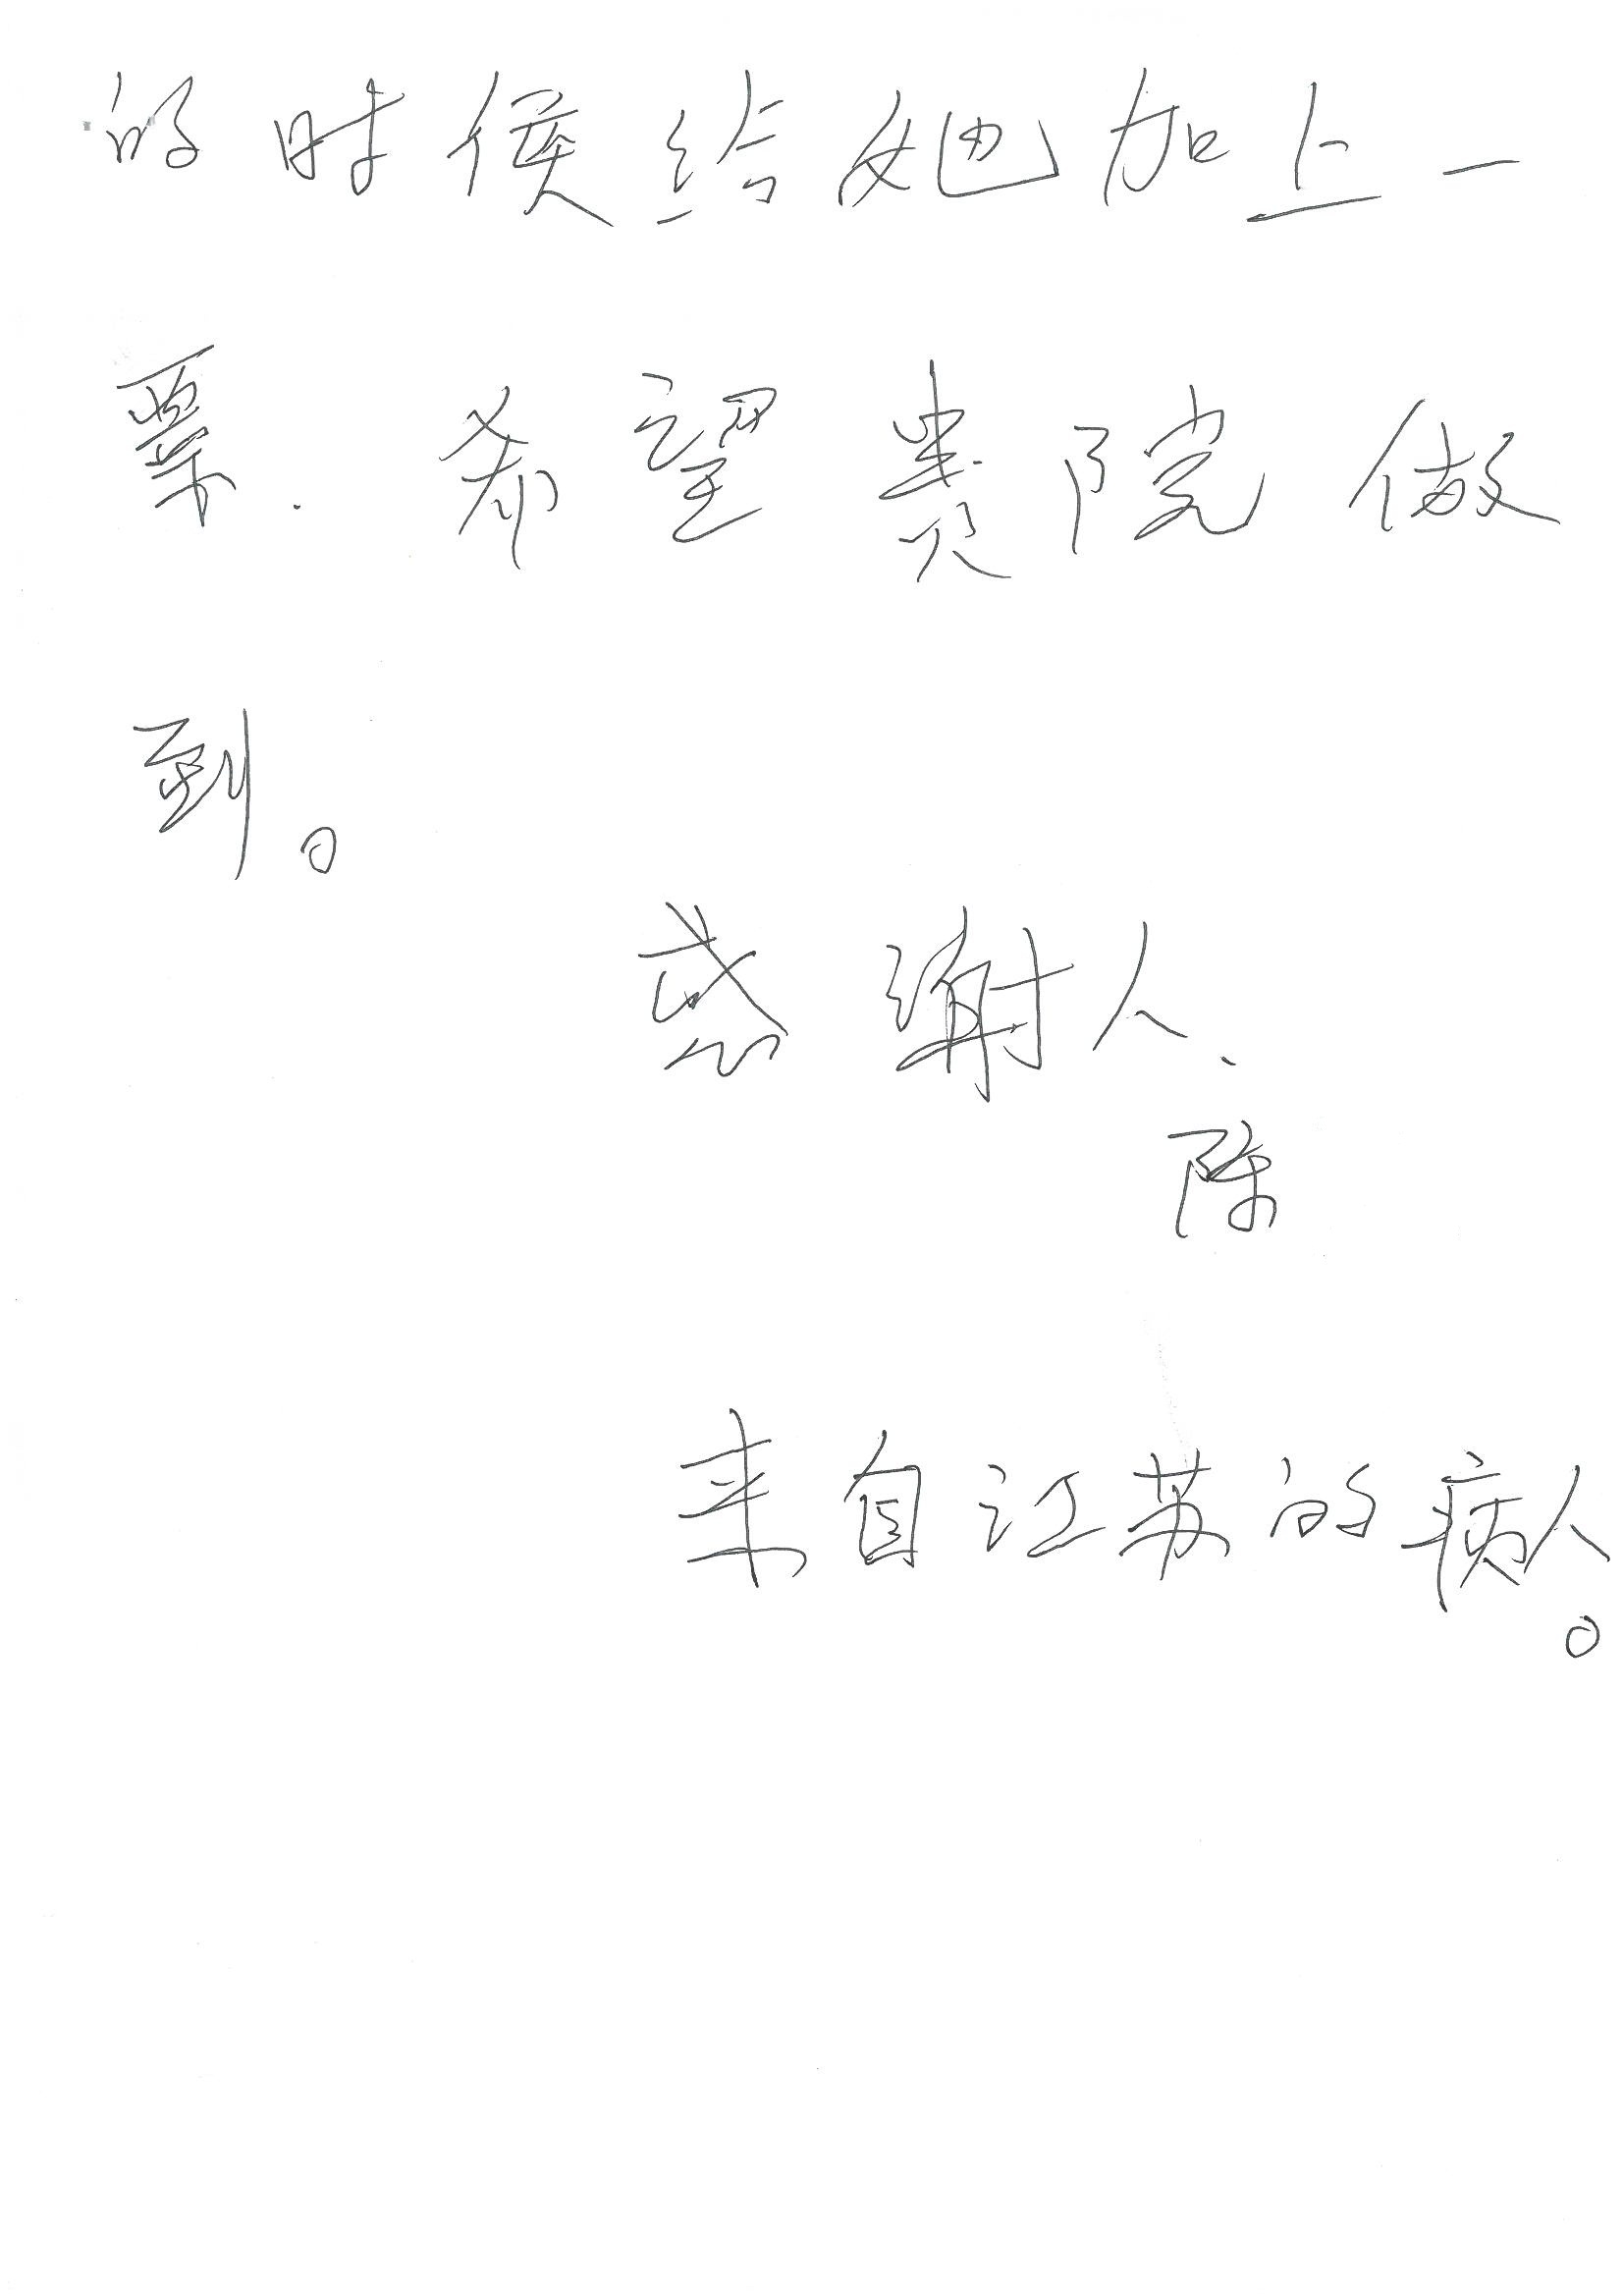 的时候给她加上一
票.希望贵院做
到。
感谢人.
陈
来自江苏的病人。